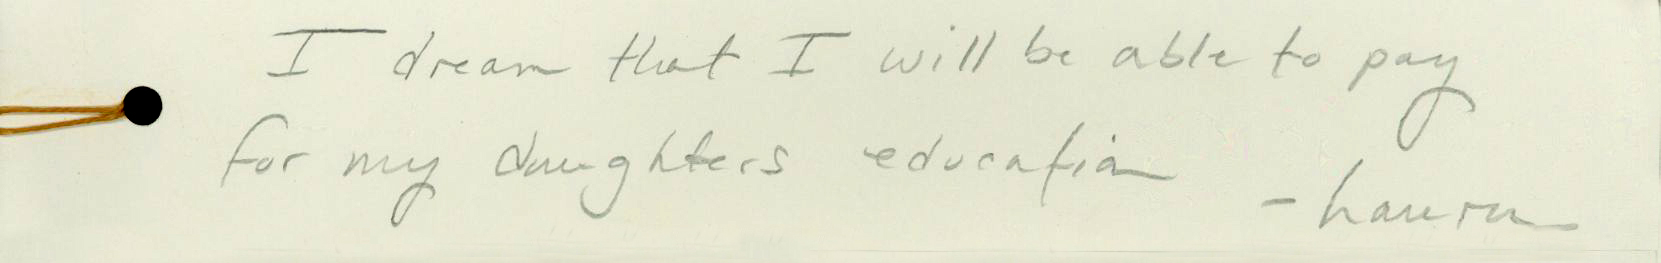 I dream that I will be able to pay
for my daughters education
- Laura